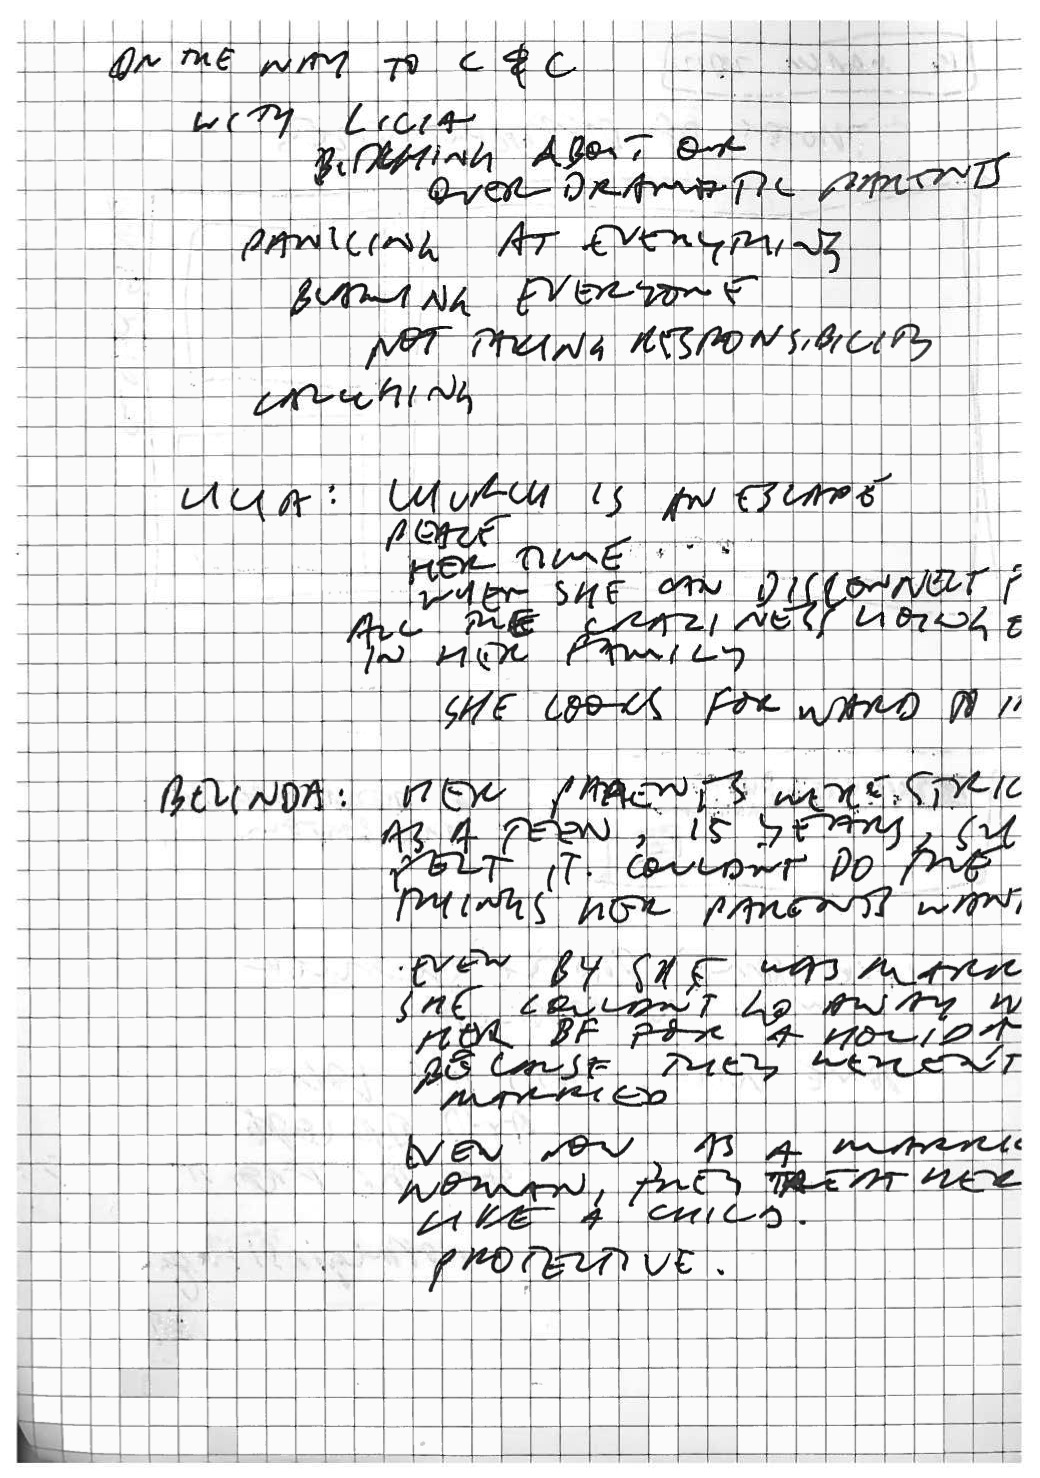 ON THE WAY TO C & C
WITH LICIA
BITCHING ABOUT OUR
OVER DRAMATIC PARENTS
PANICING AT EVERYTHING
BLAMING EVERYONE
NOT TAKING RESPONSIBILITY
LAUGHING
LICIA: CHURCH IS AN ESCAPE
PEACE
HER TIME
WHEN SHE CAN DISCONNECT F
ALL THE CRAZINESS
IN HER FAMILY
SHE LOOKS FORWARD TO I
BELINDA: HER PARENTS WERE STRIC
AS A TEEN, 15 YEARS, SH
FELT IT. COULDNT DO THE
THINGS HER PARENTS WANT
EVEN BY SHE WAS MARR
SHE COULDNT GO AWAY W
HER BF FOR A HOLIDA
BECAUSE THEY WEREN'T
MARRIED
EVEN NOW, AS A MARRIE
WOMAN, THEY TREAT HER
LIKE A CHILD.
PROTECTIVE.